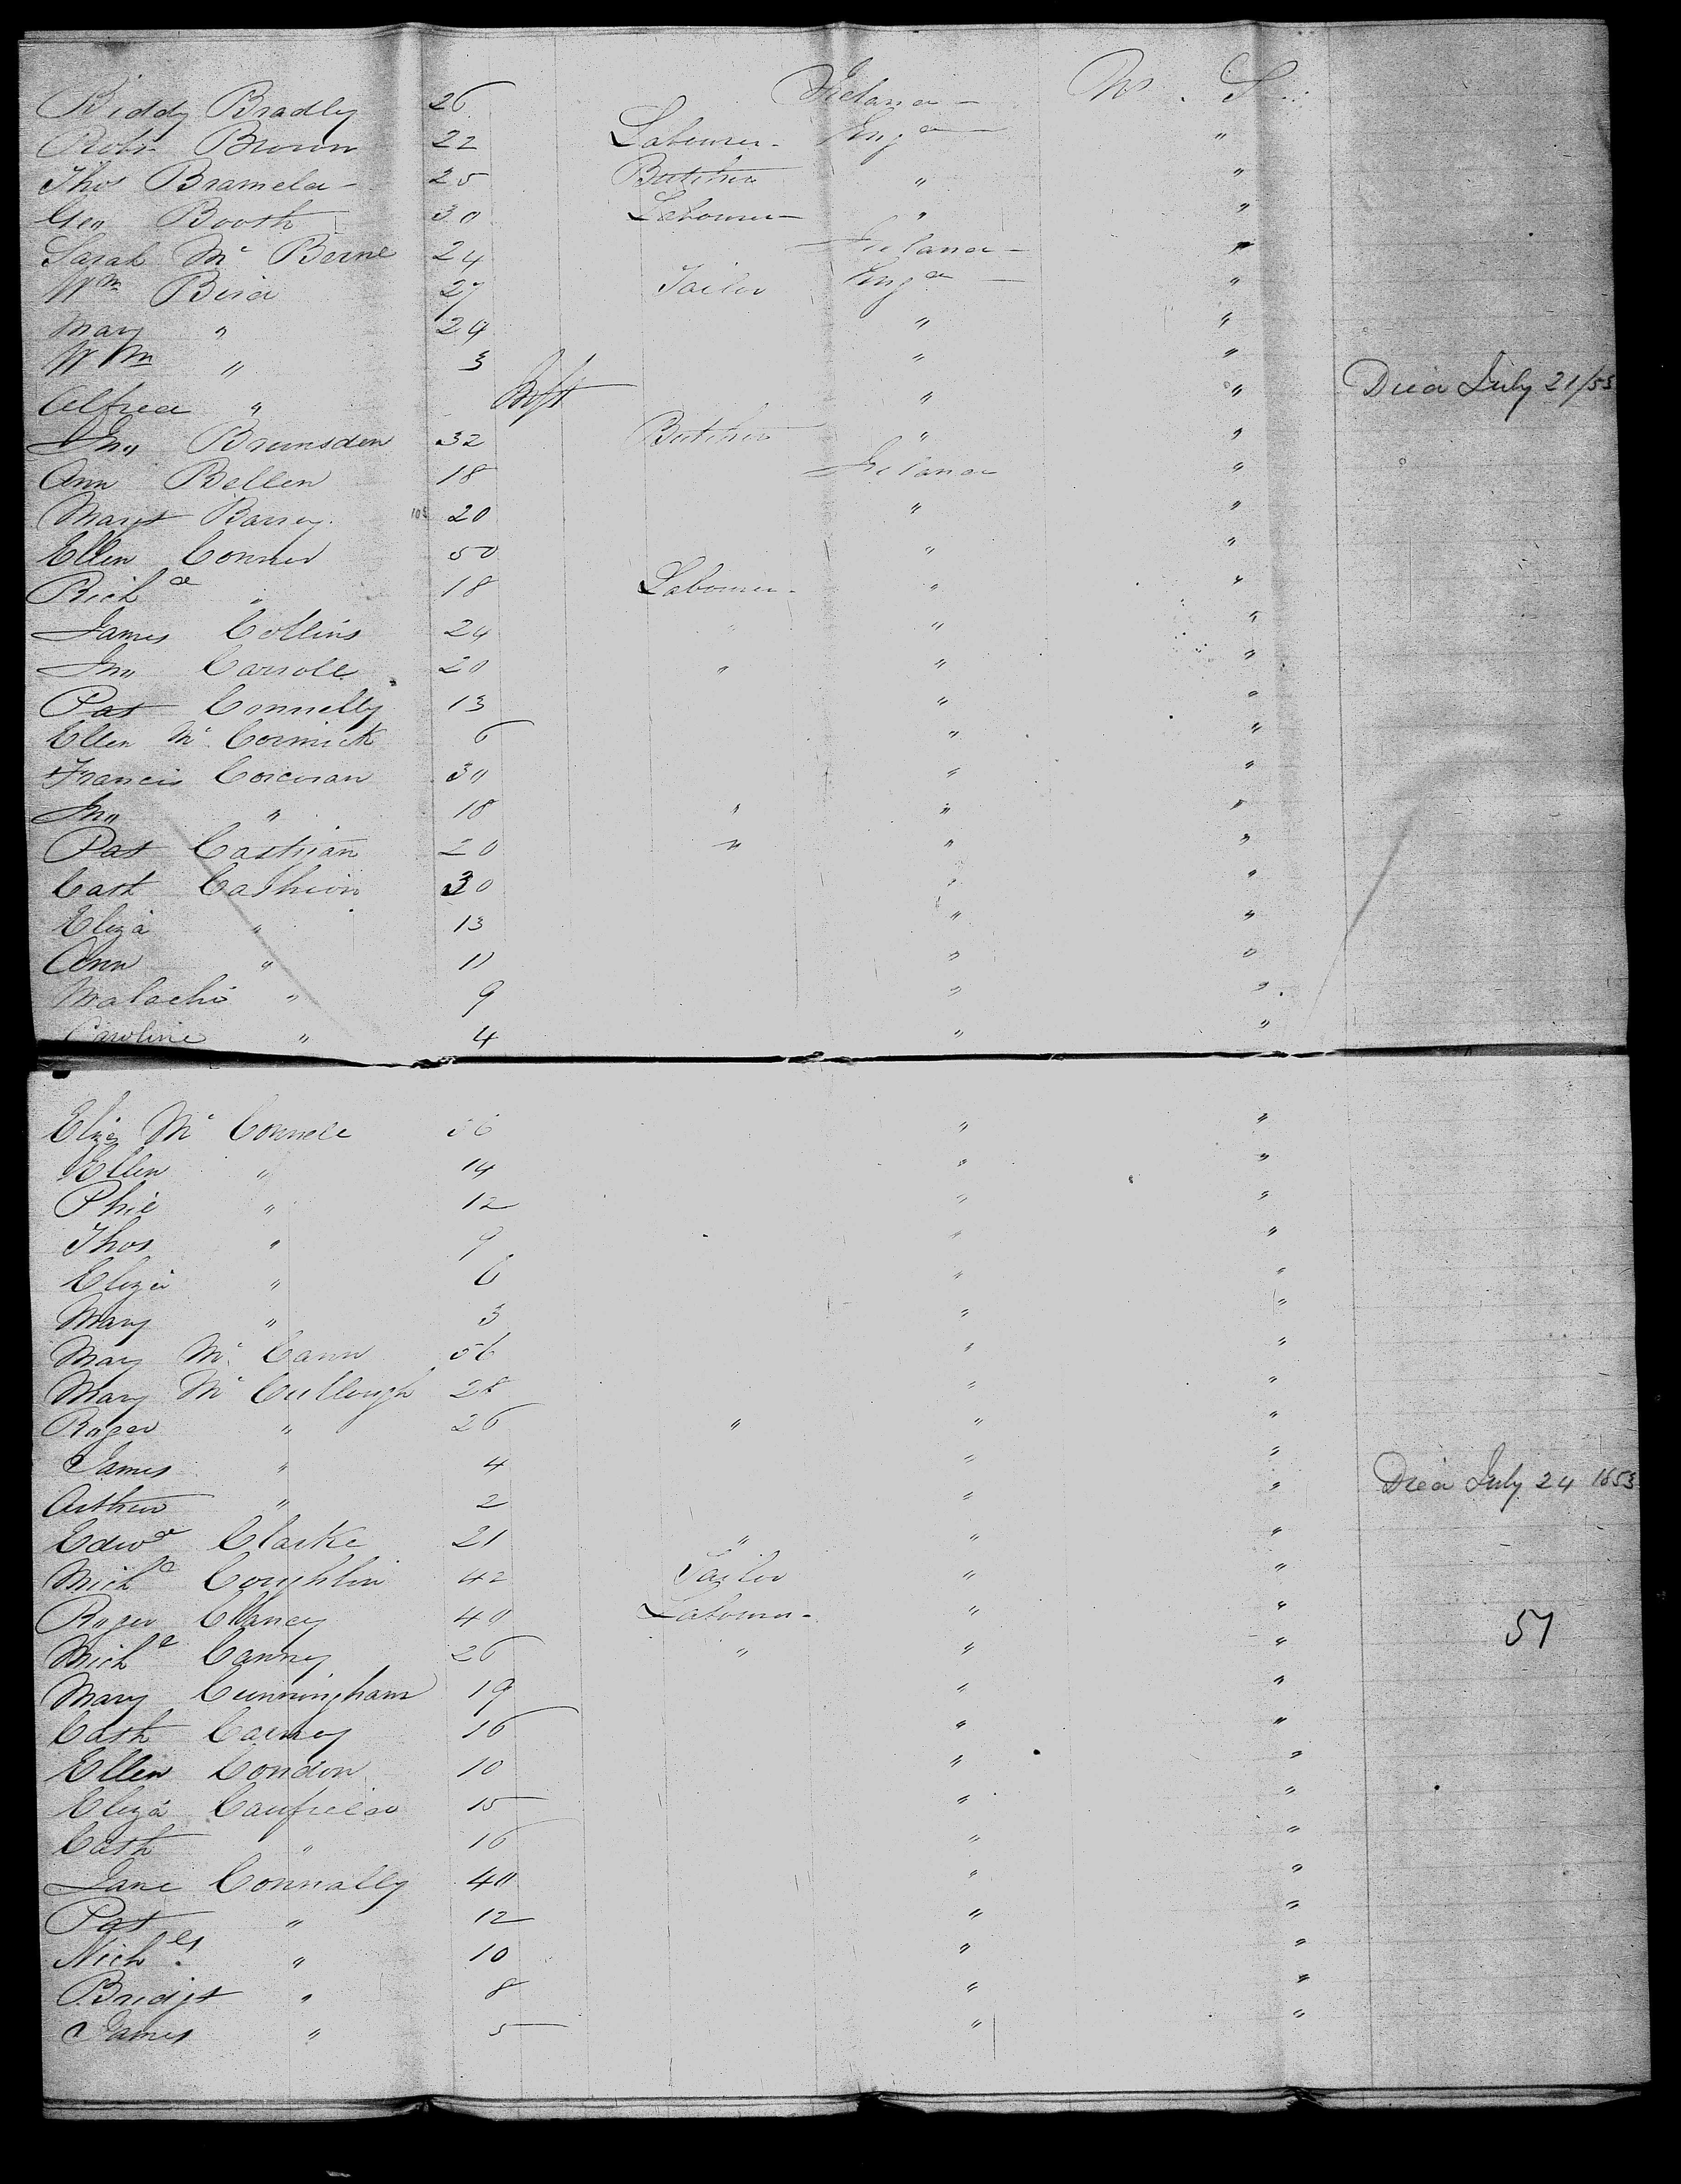 Biddy Bradly 26 Ireland U . S
Robt Brown 22 Labourer Engd "
Thos Brameld 25 Butcher " "
Geo Booth 30 Labourer " "
Sarah Mc Berne 24 Ireland "
Wm Bird 27 Tailor Engd "
Mary " 29 " "
Wm " 3 " "
Alfred " Inft " " Died July 21/53
Jno Brunsden 32 Butcher " "
Ann Bellen 18 Ireland "
Margt Barrey 20 " "
Ellen Connor 50 " "
Richd " 18 Labourer " "
James Collins 24 " " "
Jno Carroll 20 " " "
Pat Connelly 13 " "
Ellen Mc Cormick 6 " "
Francis Corcoran 30 " "
Jno " 18 " " "
Pat Castigan 20 " " "
Cath Cashion 30 " "
Eliza " 13 " "
Ann " 11 " "
Malachi " 9 " "
Caroline " 4 " "
Eliza Mc Connell 36 " "
Ellen " 14 " "
Phil " 12 " "
Thos " 9 " "
Eliza " 6 " "
Mary " 3 " "
Mary Mc Cann 56 " "
Mary Mc Cullough 28 " "
Roger " 26 " " "
James " 4 " "
Arthur " 2 " " Died July 24 1853
Edwd Clarke 21 " " "
Michl Coughlin 42 Tailor " "
Roger Clancy 40 Labourer " "
Michl Canney 26 " " " 51
Mary Cunningham 19 " "
Cath Carney 16 " "
Ellen Condon 10 " "
Eliza Caufield 15 " "
Cath " 16 " "
Jane Connally 40 " "
Pat " 12 " "
Nichls " 10 " "
Bridgt " 8 " "
James " 5 " "